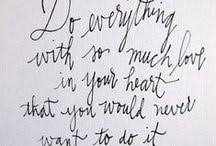 Do everything
with so much love
in your heart
that you would never
want to do it